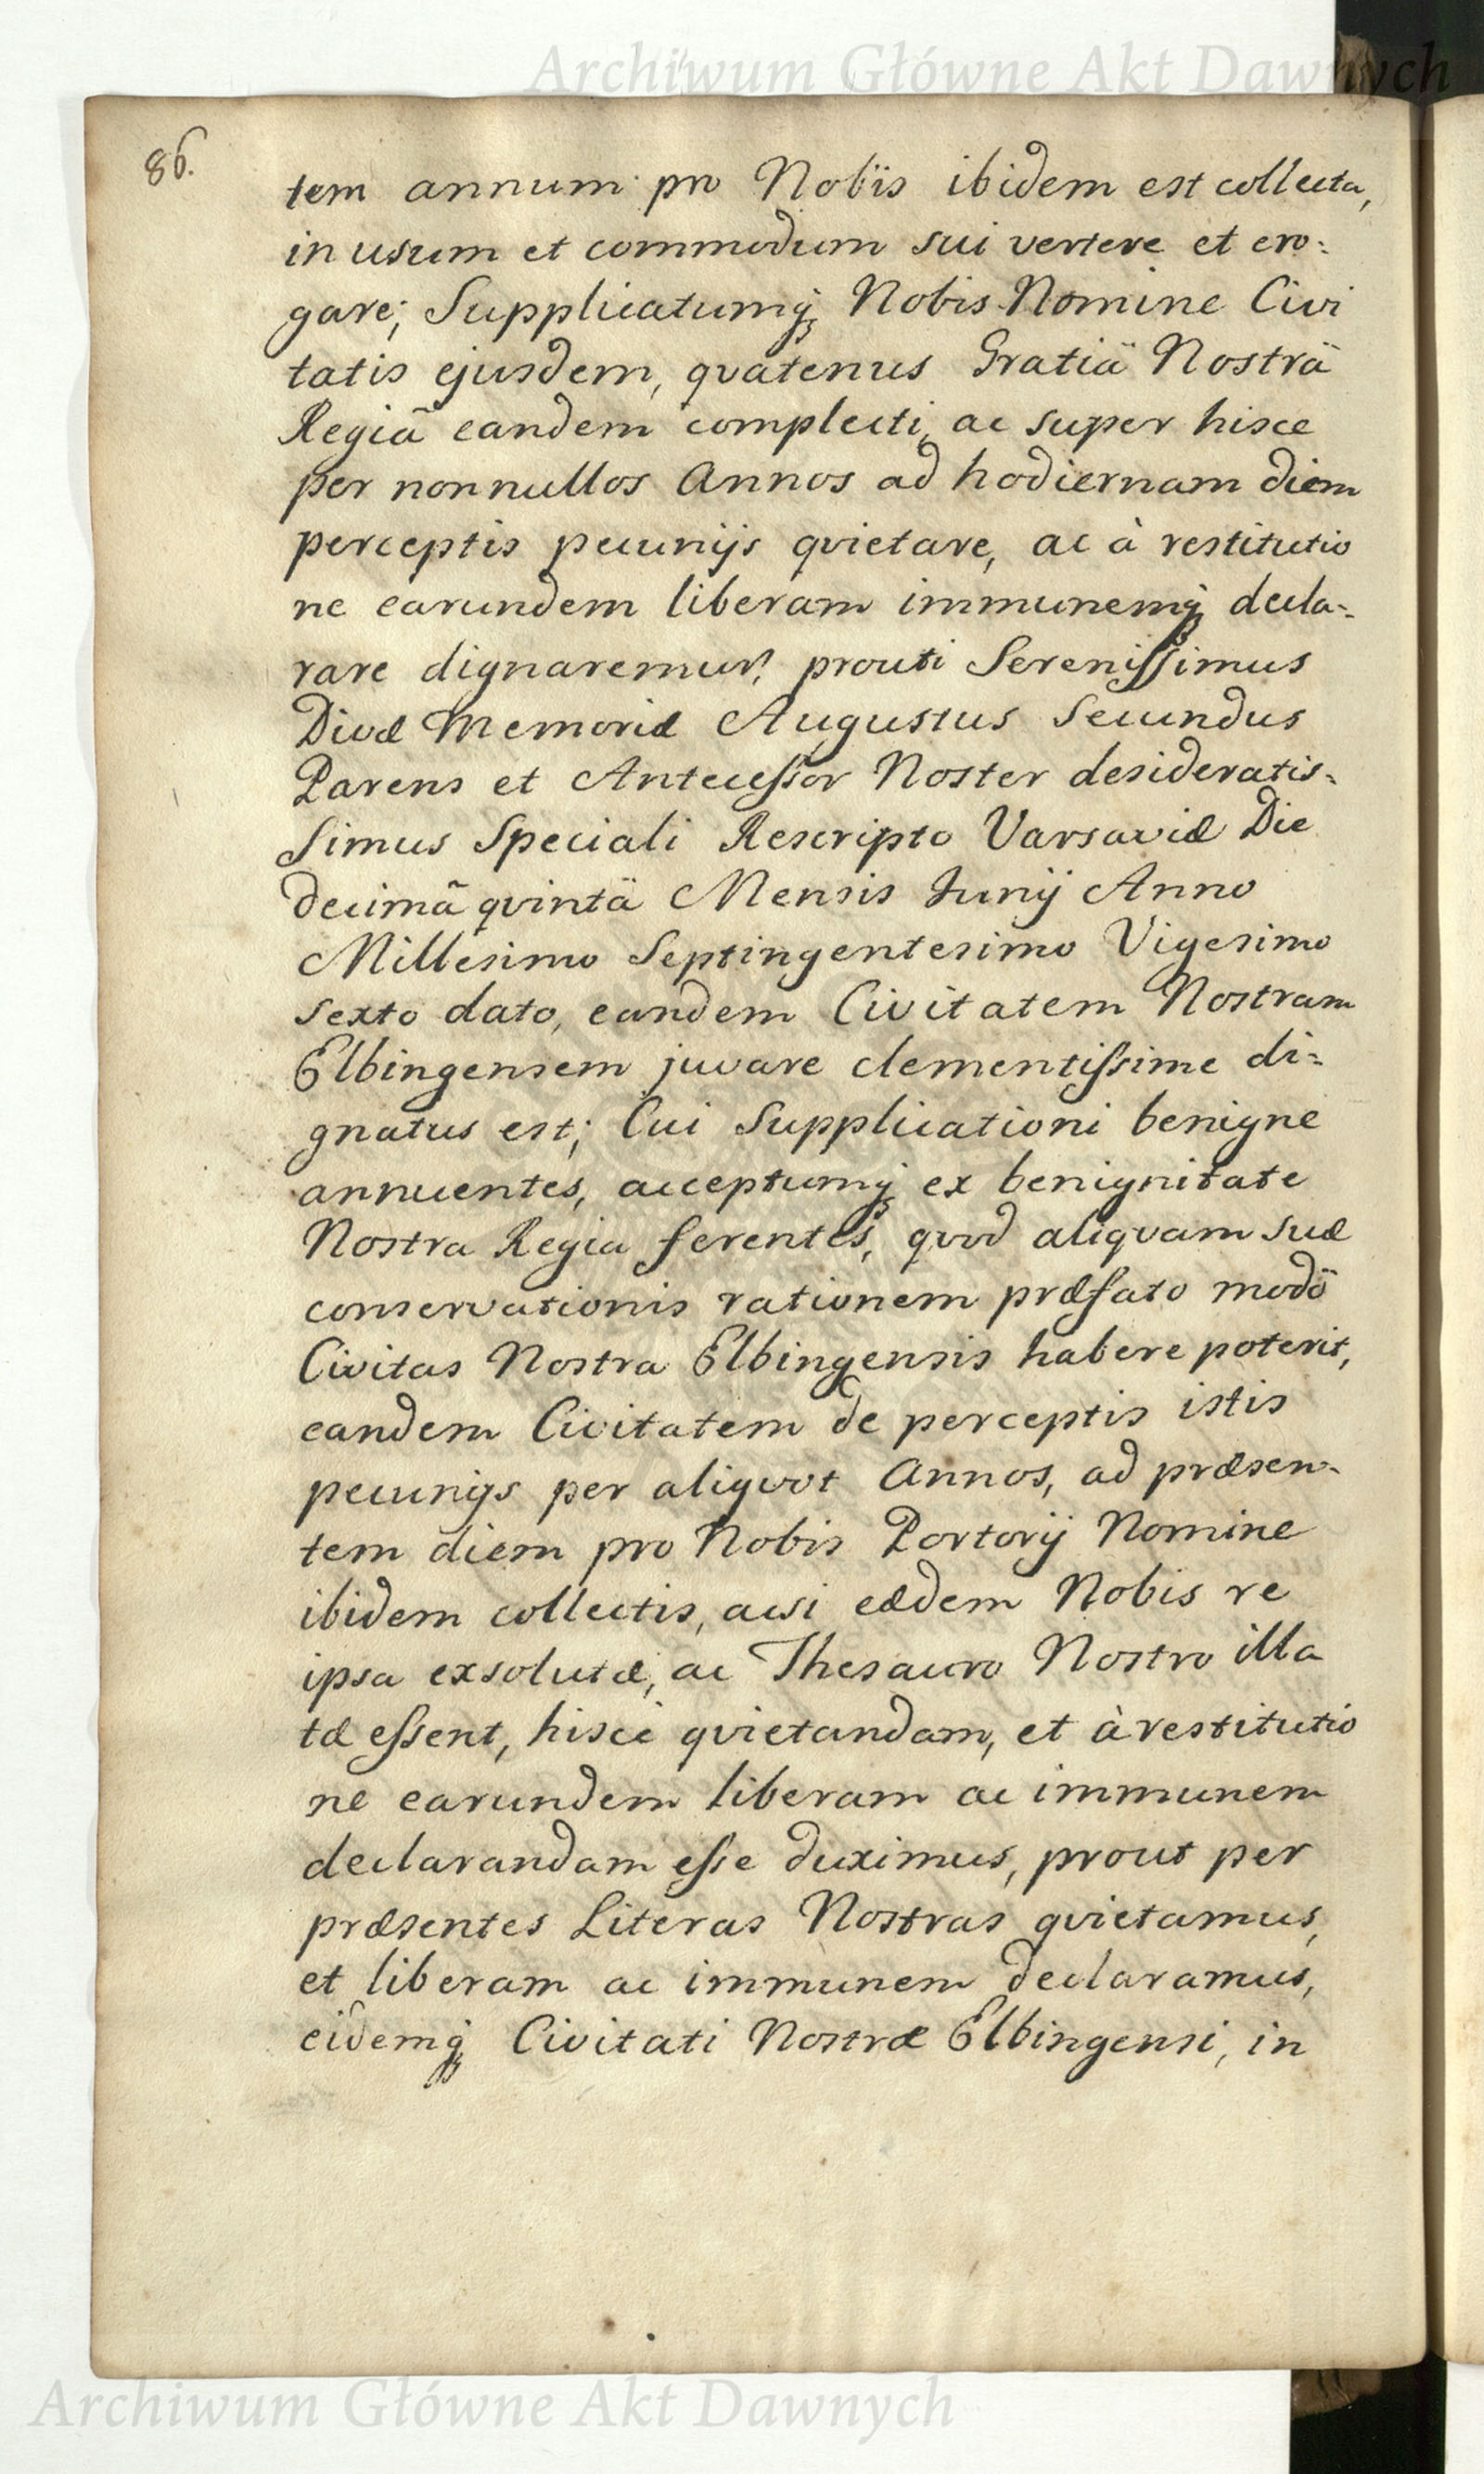 Archiwum Główne Akt Dawnych
86.
tem annum pro Nobis ibidem est collecta,
in usum et commodum sui vertere et ero:
gare; Supplicatumq; Nobis Nomine Civi
tatis ejusdem, qvatenus Gratiâ Nostrâ
Regiâ eandem complecti, ac super hisce
per nonnullos Annos ad hodiernam diem
perceptis pecunijs qvietare, ac à restitutio
ne earundem liberam immunemq; decla-
rare dignaremur, prouti Serenissimus
Divæ Memoriæ Augustus Secundus
Parens et Antecessor Noster desideratis-
simus Speciali Rescripto Varsaviæ Die
decimâ qvintâ Mensis Junij Anno
Millesimo Septingentesimo Vigesimo
sexto dato, eandem Civitatem Nostram
Elbingensem juvare clementissime di-
gnatus est; Cui Supplicationi benigne
annuentes, acceptumq; ex benignitate
Nostra Regia ferentes, qvod aliqvam suæ
conservationis rationem præfato modô
Civitas Nostra Elbingensis habere poterit,
eandem Civitatem de perceptis istis
pecunijs per aliqvot Annos, ad præsen-
tem diem pro Nobis Portorij Nomine
ibidem collectis, acsi eædem Nobis re
ipsa exsolutæ, ac Thesauro Nostro illa
tæ essent, hisce qvietandam, et à restitutio
ne earundem liberam ac immunem
declarandam esse duximus, prout per
præsentes Literas Nostras qvietamus,
et liberam ac immunem declaramus,
eidemq; Civitati Nostræ Elbingensi, in
Archiwum Główne Akt Dawnych